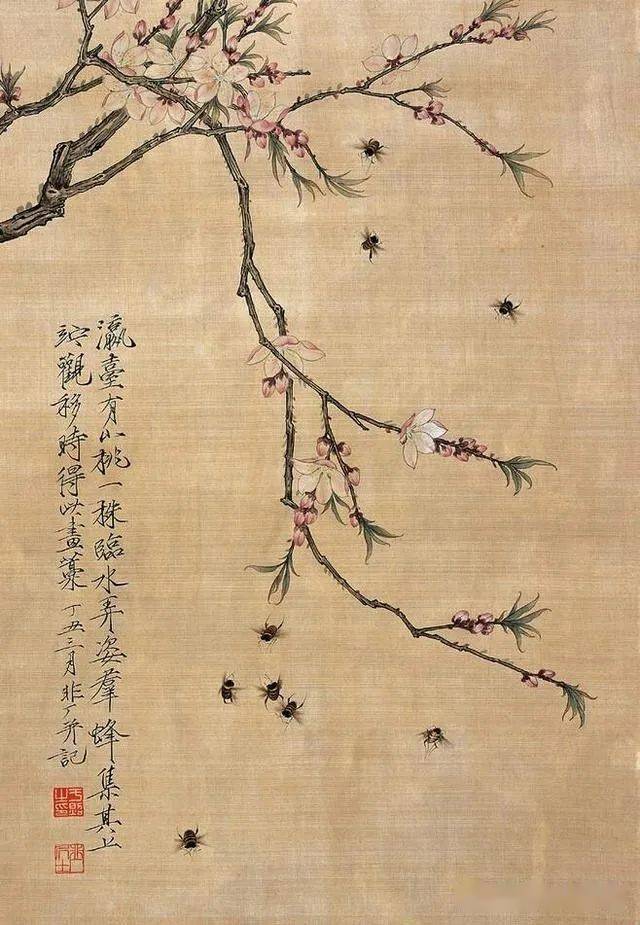 瀛臺有小桃一株臨水弄姿羣蜂集其上
竚觀移時得此畫藁 丁丑三月非厂并記
于照之印